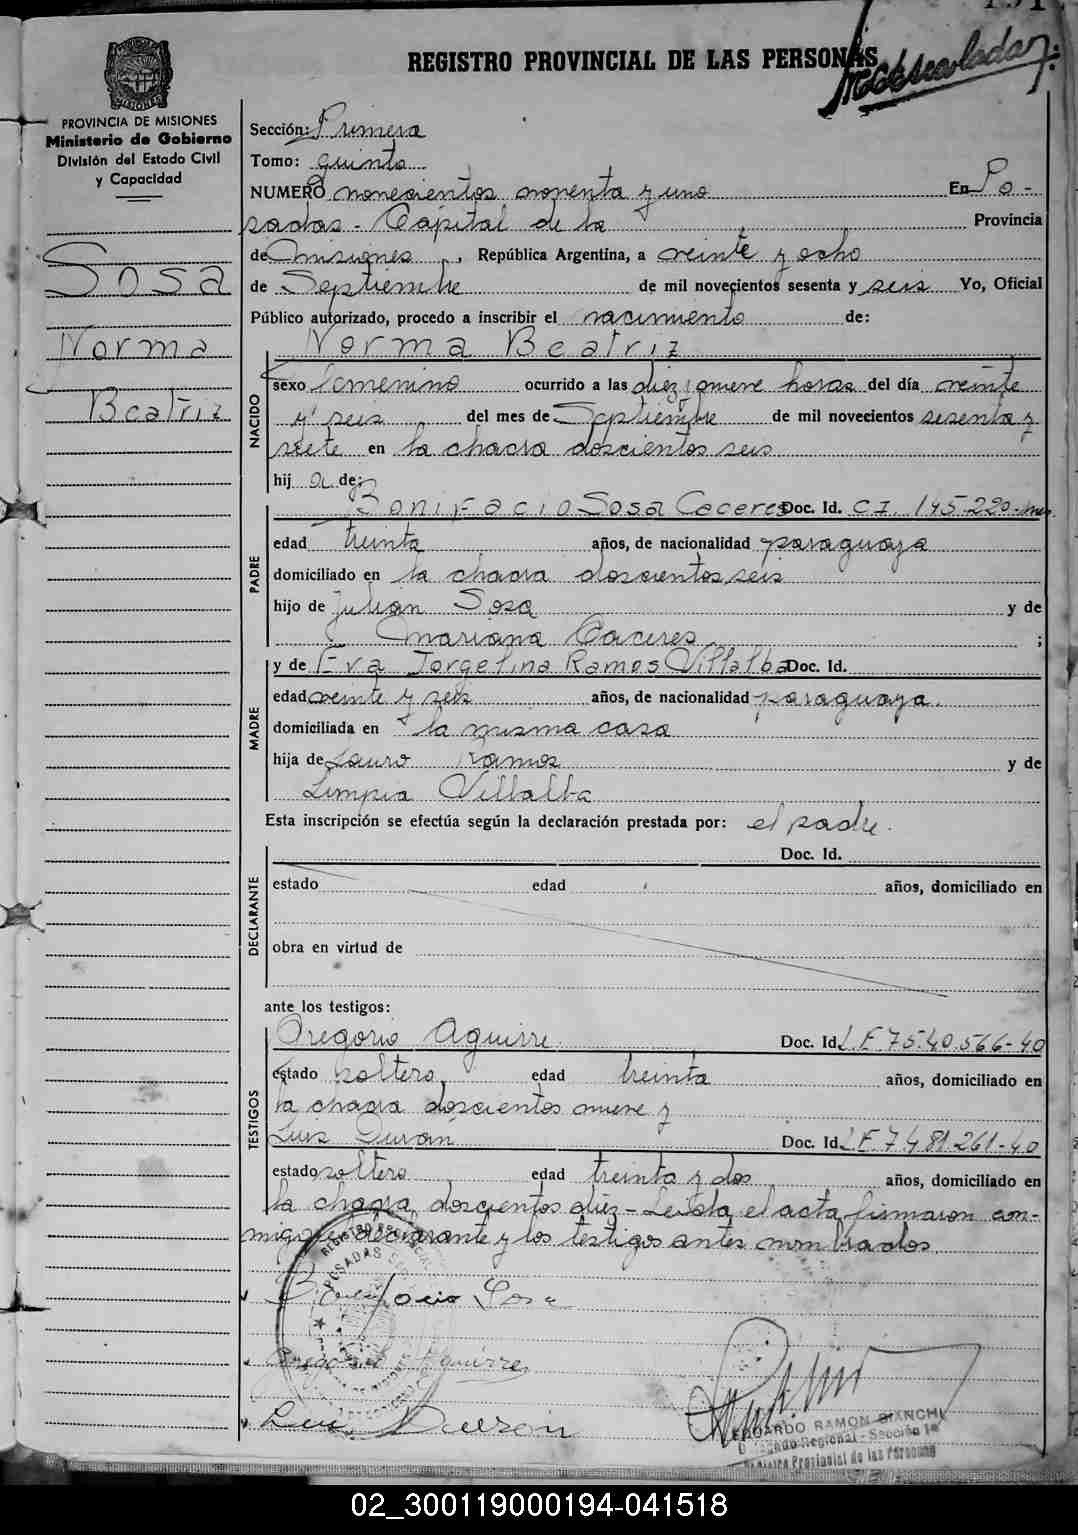 REGISTRO PROVINCIAL DE LAS PERSONAS
PROVINCIA DE MISIONES
Ministerio de Gobierno
División del Estado Civil
y Capacidad
Sosa
Norma
Beatriz
Sección: Primera
Tomo: quinto
NUMERO novecientos noventa y uno En Po-
sadas - Capital de la Provincia
de Misiones, República Argentina, a veinte y ocho
de Septiembre de mil novecientos sesenta y seis Yo, Oficial
Público autorizado, procedo a inscribir el nacimiento de:
NACIDO
Norma Beatriz
sexo femenino ocurrido a las diez i nueve horas del día veinte
y seis del mes de Septiembre de mil novecientos sesenta y
siete en la chacra doscientos seis
hij a de:
PADRE
Bonifacio Sosa Caceres Doc. Id. CI. 145-220-mnes.
edad treinta años, de nacionalidad paraguaya
domiciliado en la chacra doscientos seis
hijo de Julian Sosa y de
Mariana Caceres ;
MADRE
y de Eva Jorgelina Ramos Villalba Doc. Id.
edad veinte y seis años, de nacionalidad paraguaya.
domiciliada en la misma casa
hija de Lauro Ramos y de
Limpia Villalba
Esta inscripción se efectúa según la declaración prestada por: el padre.
DECLARANTE
Doc. Id.
estado edad años, domiciliado en
obra en virtud de
ante los testigos:
TESTIGOS
Gregorio Aguirre. Doc. Id. L.E. 7540.566-40
estado soltero, edad treinta años, domiciliado en
la chacra doscientos nueve y
Luis Durán Doc. Id. L.E. 7.481.261-40
estado soltero edad treinta y dos años, domiciliado en
la chacra doscientos diez - Leida el acta firmaron con-
migo el declarante y los testigos antes nombrados
Bonifacio Sosa
Gregorio Aguirre
Luis Duron
EDUARDO RAMON BIANCHI
Delegado Regional - Sección 1ª
Registro Provincial de las Personas
02_300119000194-041518